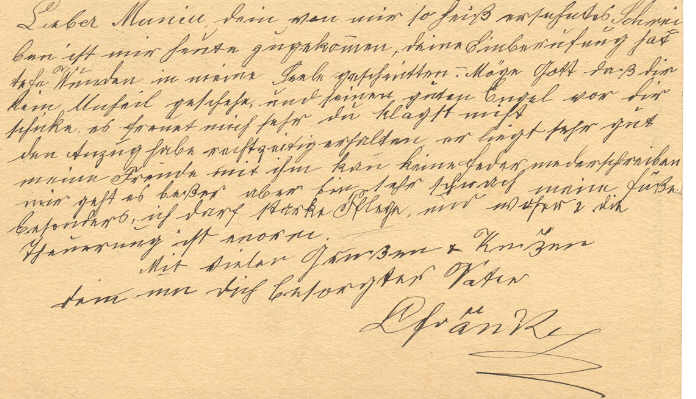 Lieber Munin, dein von mir so heiß ersehntes Schrei-
ben ist mir heute zugekommen, deine Einberufung hat
tiefe Wunden in meine Seele geschnitten. Möge Gott daß dir
kein Unheil geschehe, und seinen guten Engel vor dir
schicke. es freuet mich sehr du klagst nicht
den Anzug habe rechtzeitig erhalten er liegt sehr gut
meine Freude mit ihm kan keine Feder niederschreiben
mir geht es beßer aber bin sehr schwach meine Füße
besonders, ich darf starke Pflege, und woher? die
Theuerung ist enorm.
Mit vielen Grußen & Küßen
dein um dich besorgter Vater